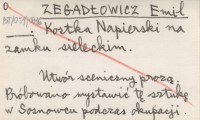 ZEGADŁOWICZ Emil
. Kostka Napierski na
zamku sieleckim.
Utwór sceniczny prozą.
Próbowano wystawić tę sztukę
w Sosnowcu podczas okupacji.